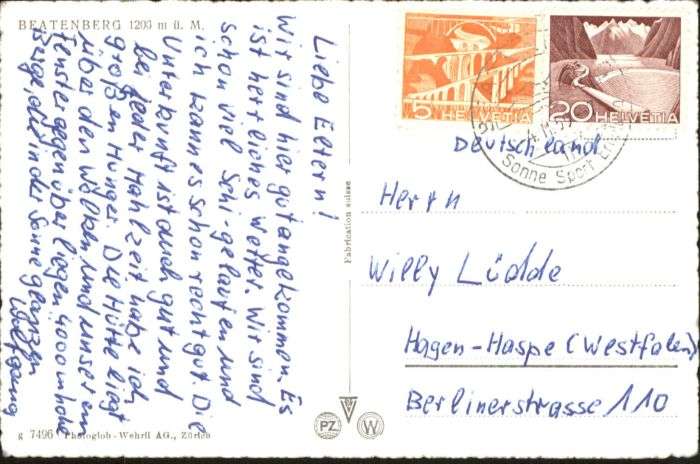 BEATENBERG 1203 m ü. M.
Liebe Eltern!
Wir sind hier gut angekommen. Es
ist herrliches Wetter. Wir sind
schon viel Schi-gelaufen und
ich kann es schon recht gut. Die
Unterkunft ist auch gut und
bei jeder Mahlzeit habe ich
großen Hunger. Die Hütte liegt
über den Wolken und unserem
Fenster gegenüber liegen 4000 m hohe
Berge, die in der Sonne glänzen.
Wolfgang
g 7496 Photoglob-Wehrli AG., Zürich
Fabrication suisse.
PZ
W
5 HELVETIA
20 HELVETIA
Sonne Sport
Deutschland
Herrn
Willy Lüdde
Hagen-Haspe (Westfalen)
Berlinerstrasse 110